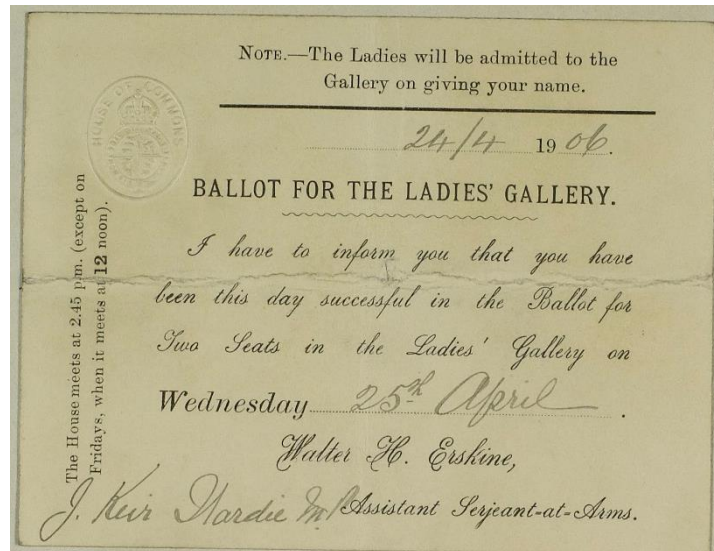 NOTE.—The Ladies will be admitted to the
Gallery on giving your name.
HOUSE OF COMMONS
24/4 1906.
BALLOT FOR THE LADIES' GALLERY.
I have to inform you that you have
been this day successful in the Ballot for
Two Seats in the Ladies' Gallery on
Wednesday 25th April.
Walter H. Erskine,
Assistant Serjeant-at-Arms.
J. Keir Hardie M.P.
The House meets at 2.45 p.m. (except on
Fridays, when it meets at 12 noon).